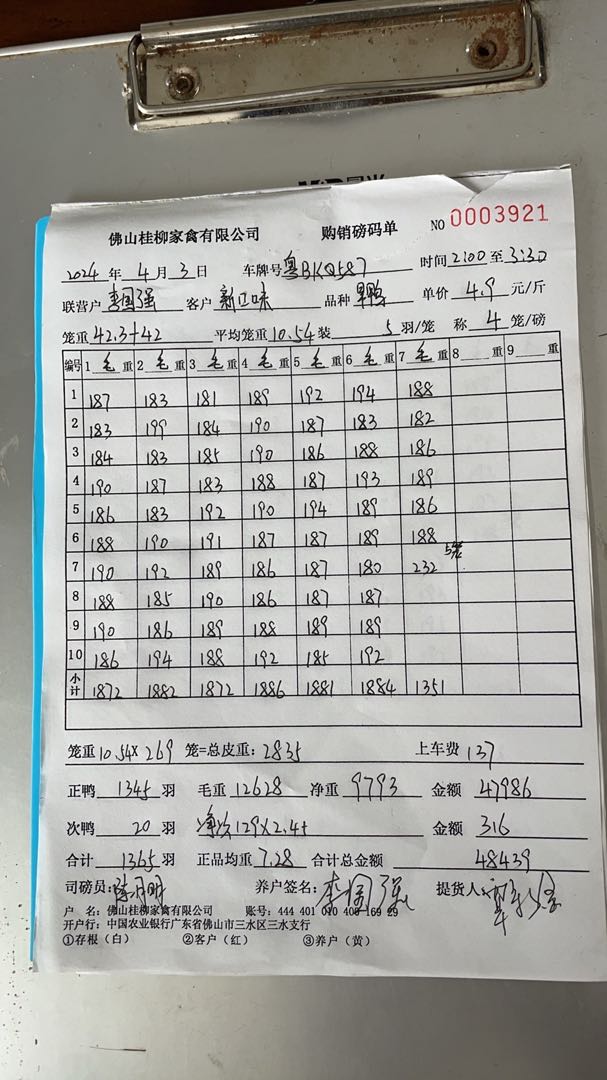 佛山桂柳家禽有限公司 购销磅码单 NO 0003921
2024 年 4 月 3 日 车牌号 粤BKQ587 时间 2:00 至 3:30
联营户 李国强 客户 新口味 品种 单价 4.9 元/斤
笼重 42.3+42 平均笼重 10.54 装 5 羽/笼 称 4 笼/磅
编号 1 毛 重 2 毛 重 3 毛 重 4 毛 重 5 毛 重 6 毛 重 7 毛 重 8 重 9 重
1 187 183 181 189 192 194 188
2 183 199 184 190 187 183 182
3 184 183 185 190 186 188 186
4 190 187 183 188 187 193 189
5 186 183 192 190 194 189 186
6 188 190 191 187 187 189 188
7 190 192 189 186 187 180 232 5笼
8 188 185 190 186 187 187
9 190 186 189 188 189 189
10 186 194 188 192 185 192
小计 1872 1882 1872 1886 1881 1884 1351
笼重 10.54× 269 笼=总皮重: 2835 上车费 137
正鸭 1345 羽 毛重 12628 净重 9793 金额 47986
次鸭 20 羽 净次129×2.45 金额 316
合计 1365 羽 正品均重 7.28 合计总金额 48439
司磅员: 养户签名: 李国强 提货人:
户 名: 佛山桂柳家禽有限公司 账号: 444 401 010 400 169 29
开户行: 中国农业银行广东省佛山市三水区三水支行
①存根（白） ②客户（红） ③养户（黄）